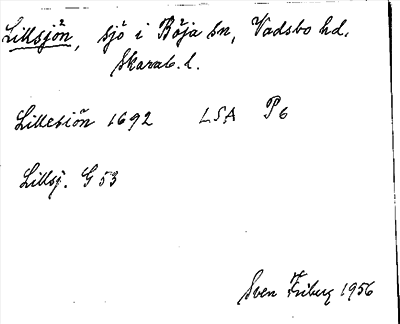 Lillsjön, sjö i Böja sn, Vadsbo hd,
Skarab. l.
Lillesiön 1692 LSA P6
Lillsj. G 53
Sven Friberg 1956